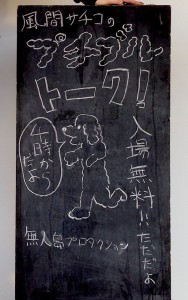 風間サチコの
プチブル
トーク!
入場無料!!ただだよ
4時から
だよ
無人島プロダクション